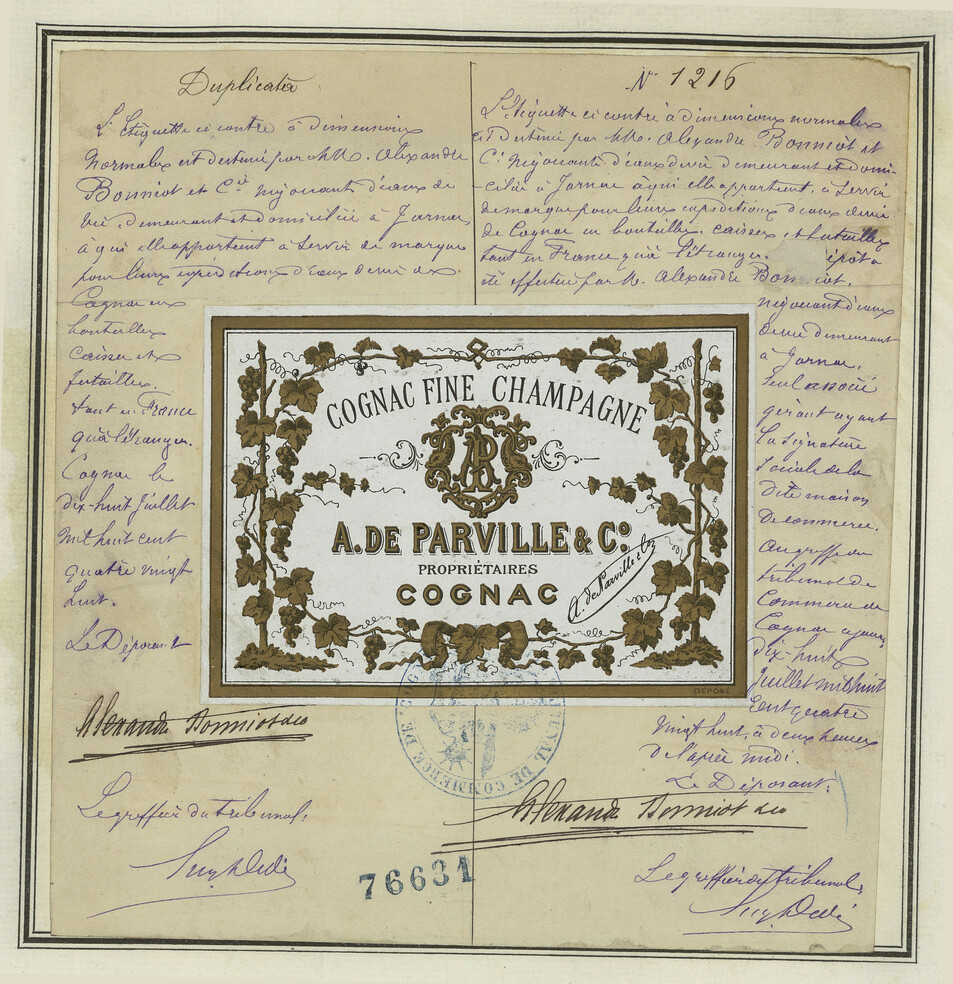 Duplicata
L'Etiquette ci contre à dimensions
Normales est destiné par MM. Alexandre
Bonniot et Cie négociants d'eaux de
vie demeurant et domicilié à Jarnac,
à qui elle appartient à servir de marque
pour leurs expéditions d'eaux de vie de
Cognac en
bouteilles
caisses et
futailles.
tant en France
qu'à l'étranger.
Cognac le
dix-huit Juillet
mil huit cent
quatre vingt
huit.
Le Déposant
Alexandre Bonniot & Co
Le greffier du tribunal.
N° 1216
L'étiquette ci contre à dimensions normales
est destiné par MM. Alexandre Bonniot et
Cie négociants d'eaux de vie demeurant et domi-
-cilié à Jarnac à qui elle appartient, à servir
de marque pour leurs expéditions d'eaux de vie
de Cognac en bouteilles, caisses et futailles
tant en France qu'à l'étranger. épôt a
été effectué par M. Alexandre Bonniot.
négociant d'eaux
de vie demeurant
à Jarnac,
seul associé
gérant ayant
la signature
sociale de la
dite maison
de commerce.
au greffe du
tribunal de
Commerce de
Cognac ce jour
dix-huit
Juillet mil huit
cent quatre
vingt huit, à deux heures
de l'après midi.
Le Déposant:
Alexandre Bonniot & Co
Le greffier du tribunal,
COGNAC FINE CHAMPAGNE
A. DE PARVILLE & Co.
PROPRIÉTAIRES
COGNAC
A. de Parville & Co
DÉPOSÉ
TRIBUNAL DE COMMERCE DE COGNAC
76631